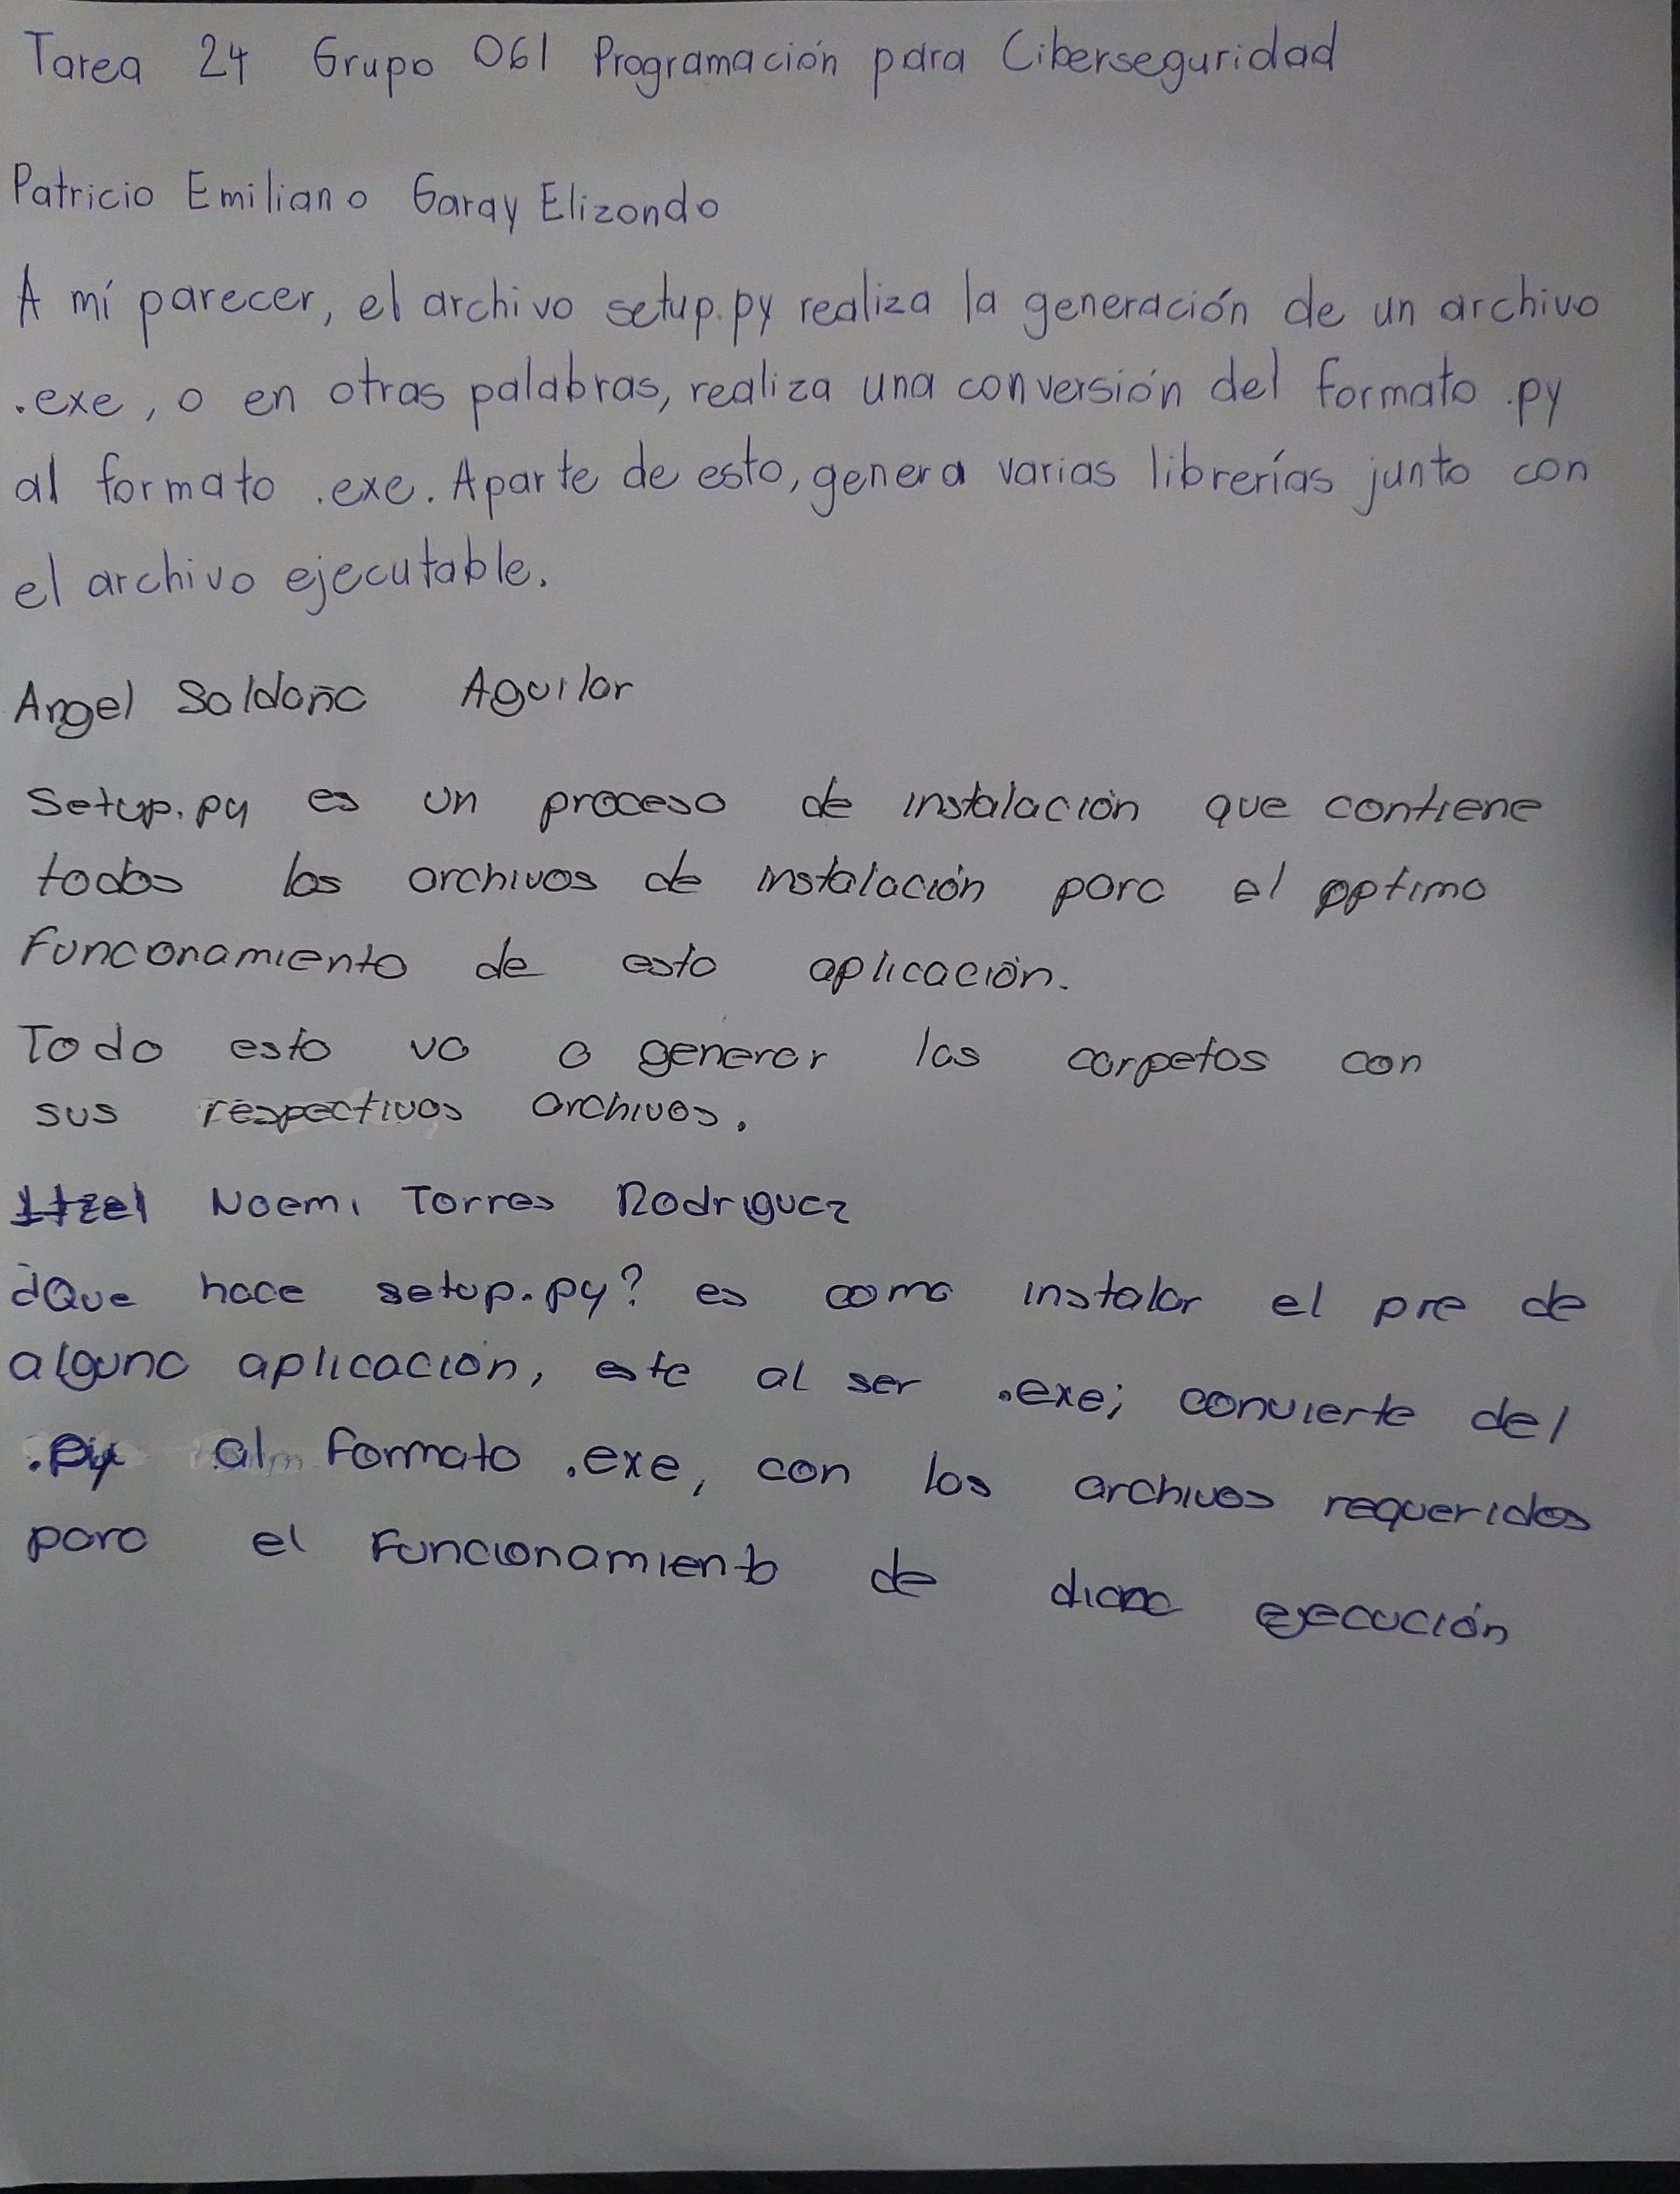 Tarea 24 Grupo 061 Programación para Ciberseguridad
Patricio Emiliano Garay Elizondo
A mí parecer, el archivo setup.py realiza la generación de un archivo
.exe, o en otras palabras, realiza una conversión del formato .py
al formato .exe. Aparte de esto, genera varias librerías junto con
el archivo ejecutable.
Angel Saldaña Aguilar
Setup.py es un proceso de instalación que contiene
todos los archivos de instalación para el optimo
funconamiento de esta aplicación.
Todo esto va a generar las carpetas con
sus respectivos archivos.
Itzel Noemi Torres Rodriguez
¿Que hace setup.py? es como instalar el pre de
alguna aplicación, este al ser .exe; convierte del
.py al formato .exe, con los archivos requeridos
para el funcionamiento de ejecución